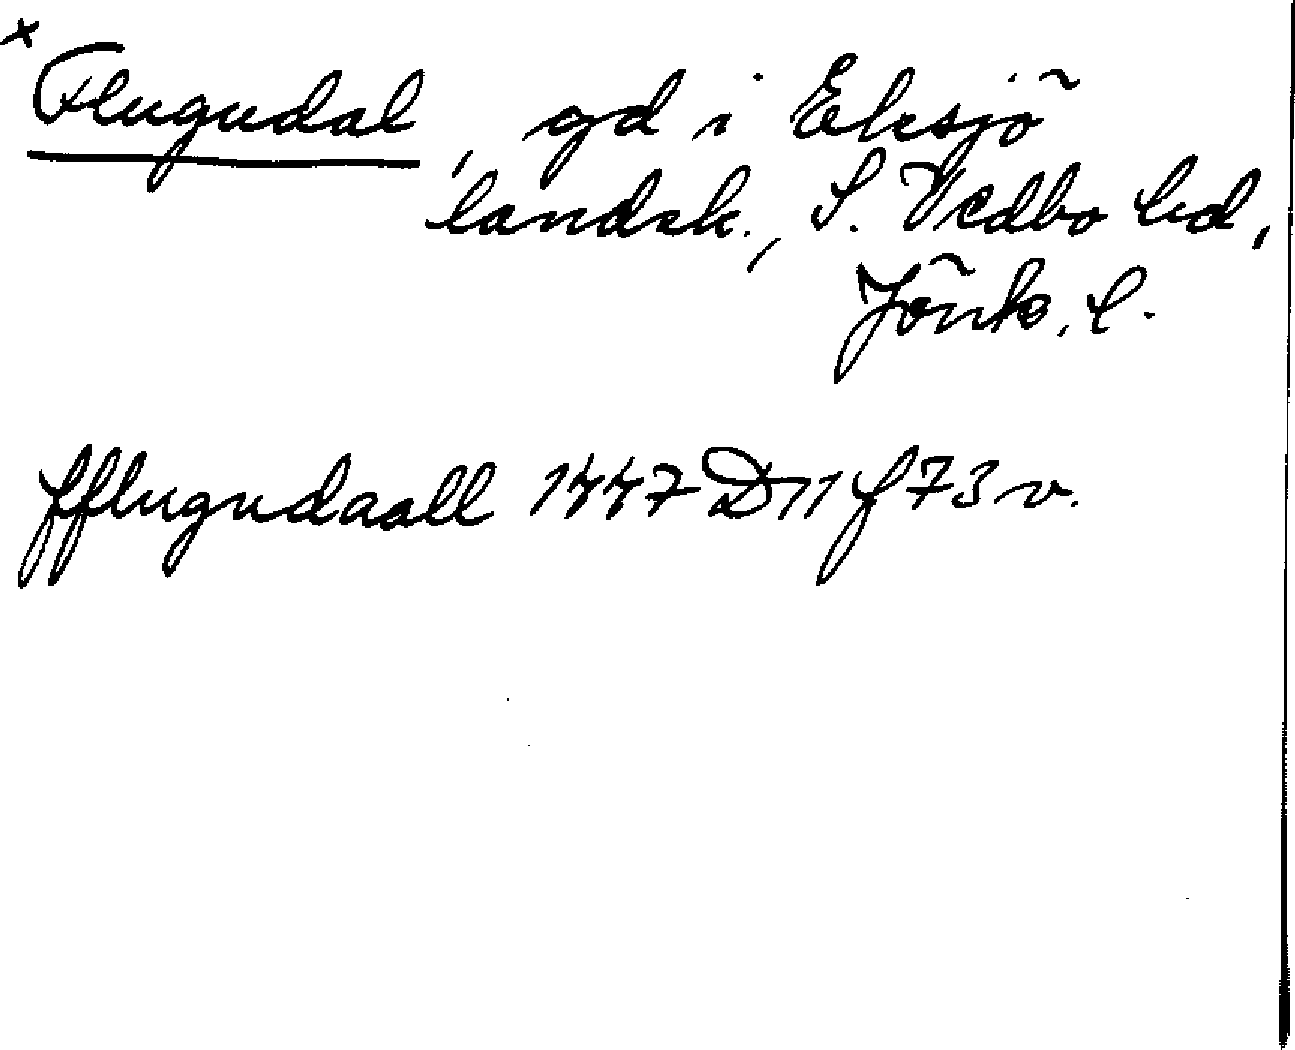 x Flugudal, gd i Eksjö
landsk., S. Vedbo hd,
Jönk. l.
fflugudaall 1447 D11 f 73 v.